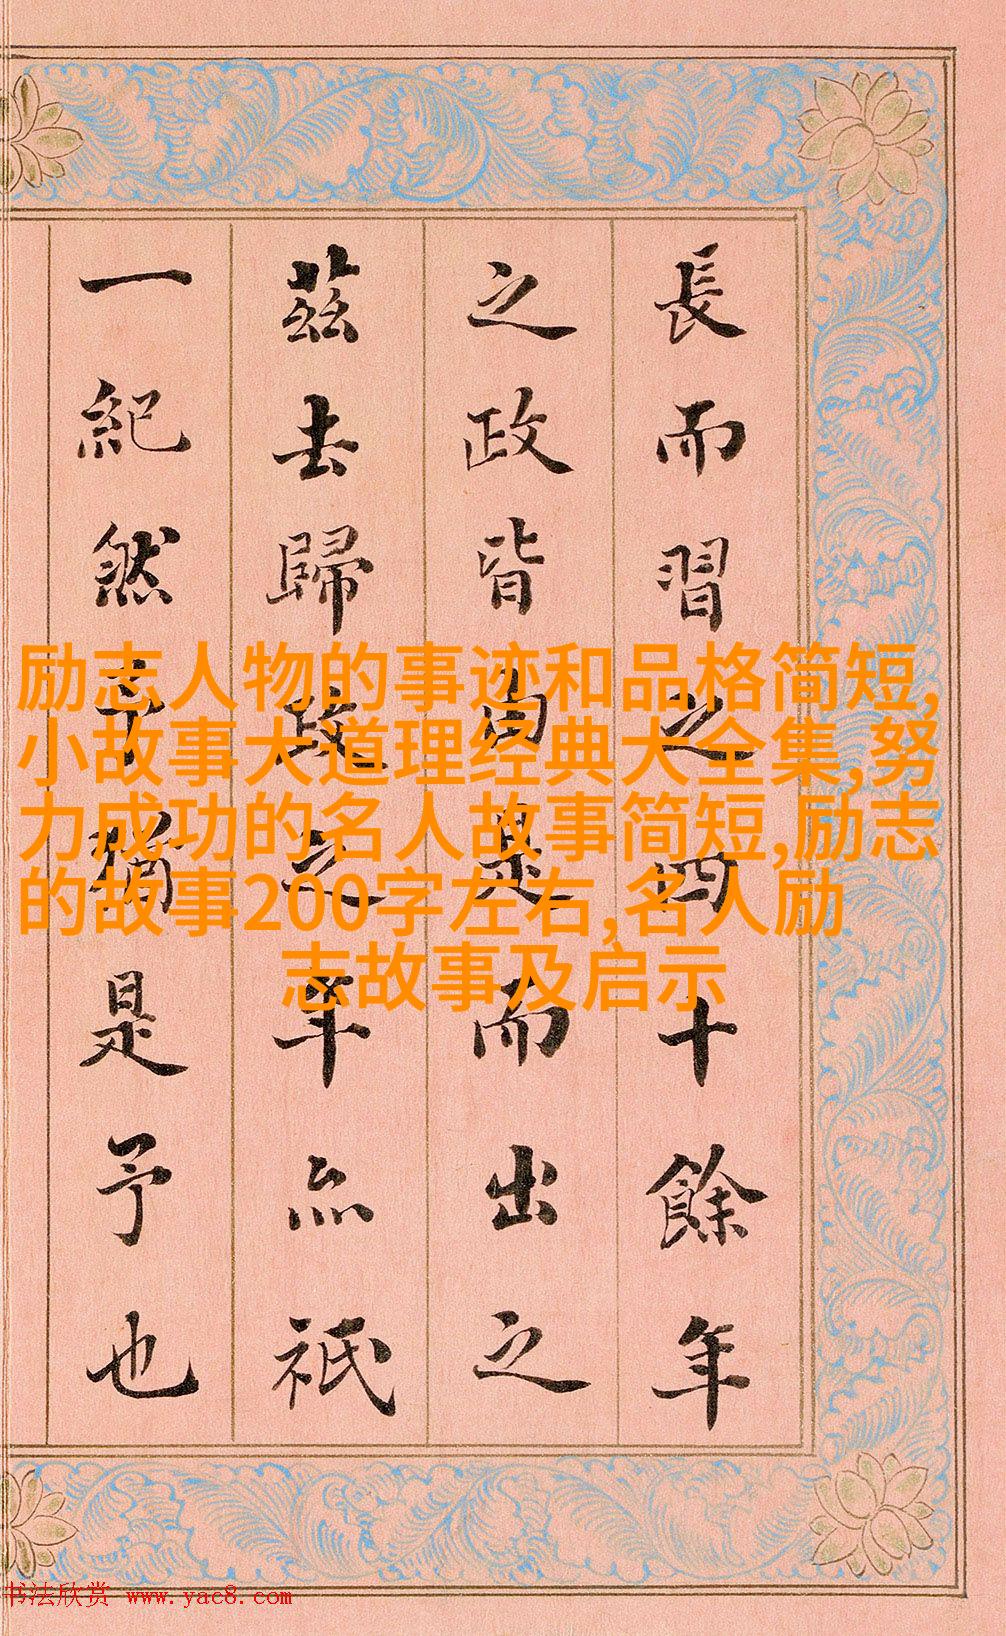 長而習之四十餘年
之政皆由是而出之
茲去歸政之年亦祇
一紀然予猶是予也
励志人物的事迹和品格简短,
小故事大道理经典大全集,努
力成功的名人故事简短,励志
的故事200字左右,名人励
志故事及启示
书法欣赏 www.yac8.com